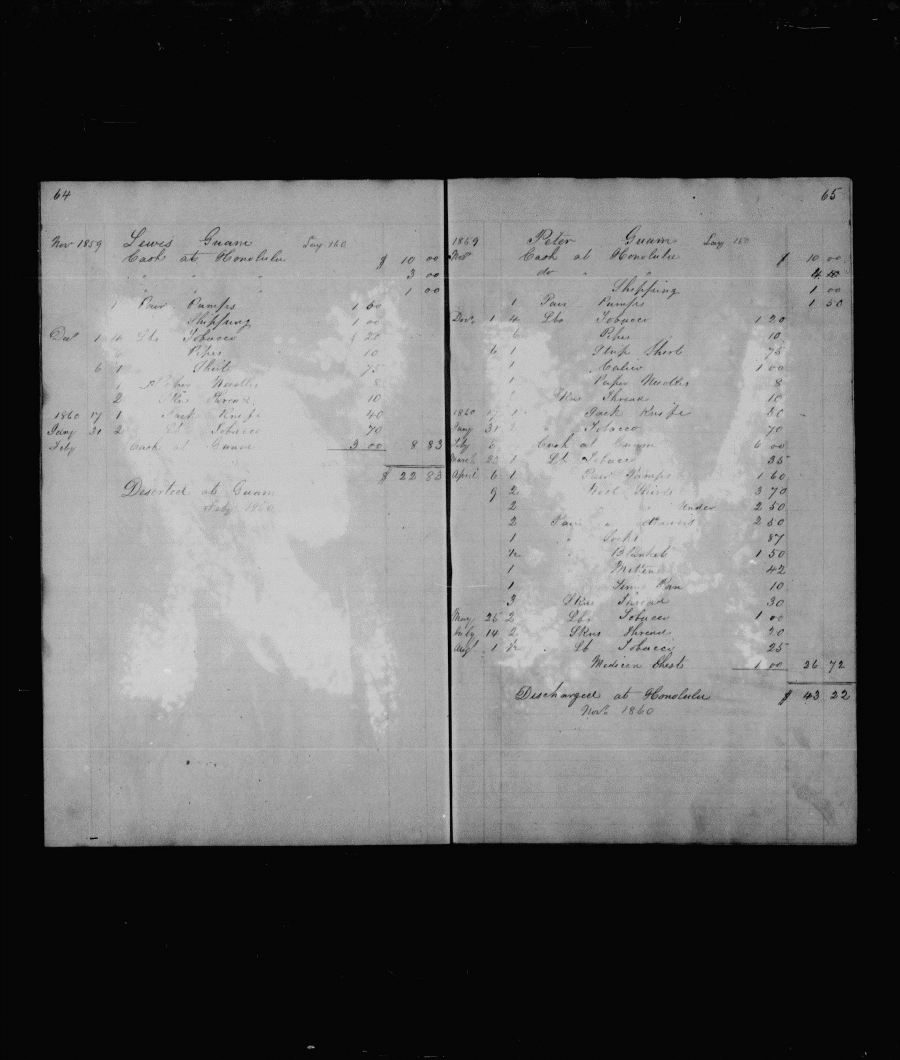 64
Nov 1859 Lewis Guam Lay 160
Cash at Honolulu $ 10 00
" " " 3 00
" " " 1 00
1 Pair Pumps 1 50
Shipping 1 00
Dec 1 4 Lbs Tobacco 1 20
Pipes 10
6 1 Shirt 75
1 Paper Needles 8
2 Skns Thread 10
1860 17 1 Jack Knife 40
Jany 31 2 Lbs Tobacco 70
Feby Cash at Guam 3 00 8 83
$ 22 83
Deserted at Guam
Feby 1860
65
1859 Peter Guam Lay 150
Nov Cash at Honolulu $ 10 00
do " "
Shipping 1 00
1 Pair Pumps 1 50
Decr 1 4 Lbs Tobacco 1 20
6 Pipes 10
6 1 Strip Shirt 75
1 Calico 1 00
1 Paper Needles 8
Skns Thread 10
1860 17 1 Jack Knife 50
Jany 31 2 " Tobacco 70
Feby Cash at Guam 6 00
March 1 Lb Tobacco 35
April 6 1 Pair Pumps 1 60
9 2 Wool Shirts 3 70
2 " Under 2 50
2 Pair " Drawers 2 50
1 " Socks 87
½ " Blankets 1 50
1 Mittens 42
1 Pan 10
3 Skns Thread 30
May 25 2 Lbs Tobacco 1 00
July 14 2 Skns Thread 20
Augt 1 ½ Lb Tobacco 25
Medicen Chest 1 00 26 72
Discharged at Honolulu $ 43 22
Novr 1860